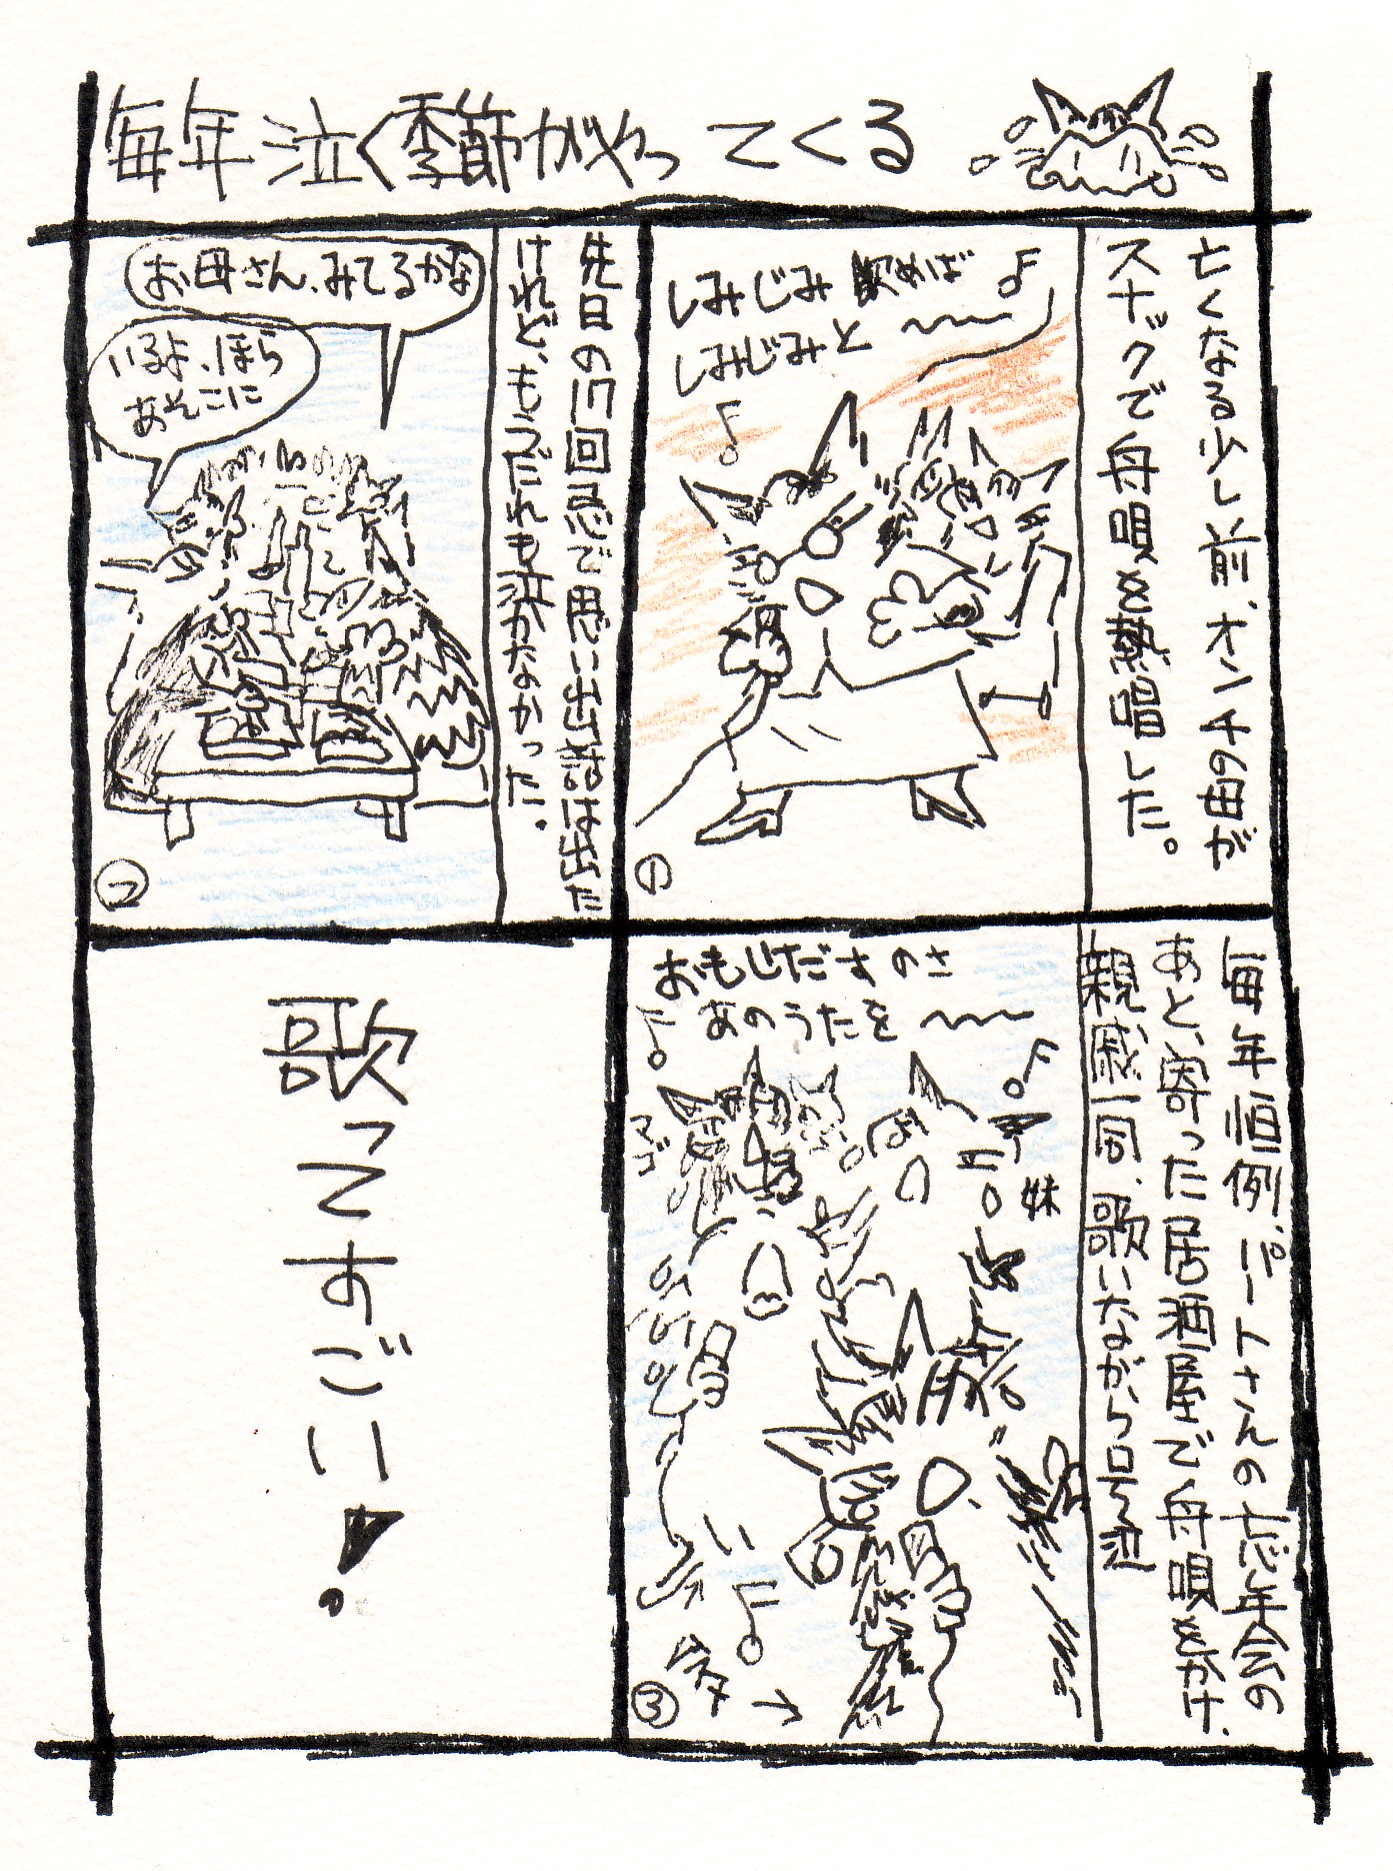 毎年泣く季節がやってくる
亡くなる少し前、オンチの母が
スナックで舟唄を熱唱した。
しみじみ飲めば
しみじみと〜〜
①
先日の17回忌で思い出話は出た
けれど、もうだれも泣かなかった。
お母さん、みてるかな
いるよ、ほら
あそこに
②
毎年恒例、パートさんの忘年会の
あと、寄った居酒屋で舟唄をかけ、
親戚一同、歌いながら号泣
おもいだすのさ
あのうたを〜〜
妹
マゴ
③
歌ってすごい!